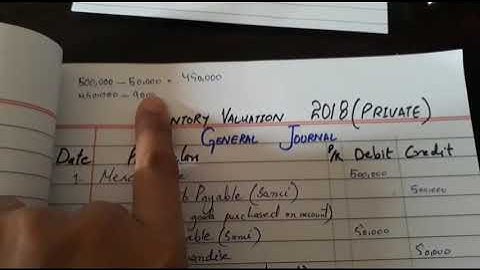 500,000 - 50,000 = 450,000
450,000 - 9000
NTORY VALUATION 2018 (PRIVATE)
GENERAL JOURNAL
Date P/R Debit Credit
1 500,000
Payable (Sami) 500,000
goods purchased on account)
able (Sami) 50,000
handise 50,000